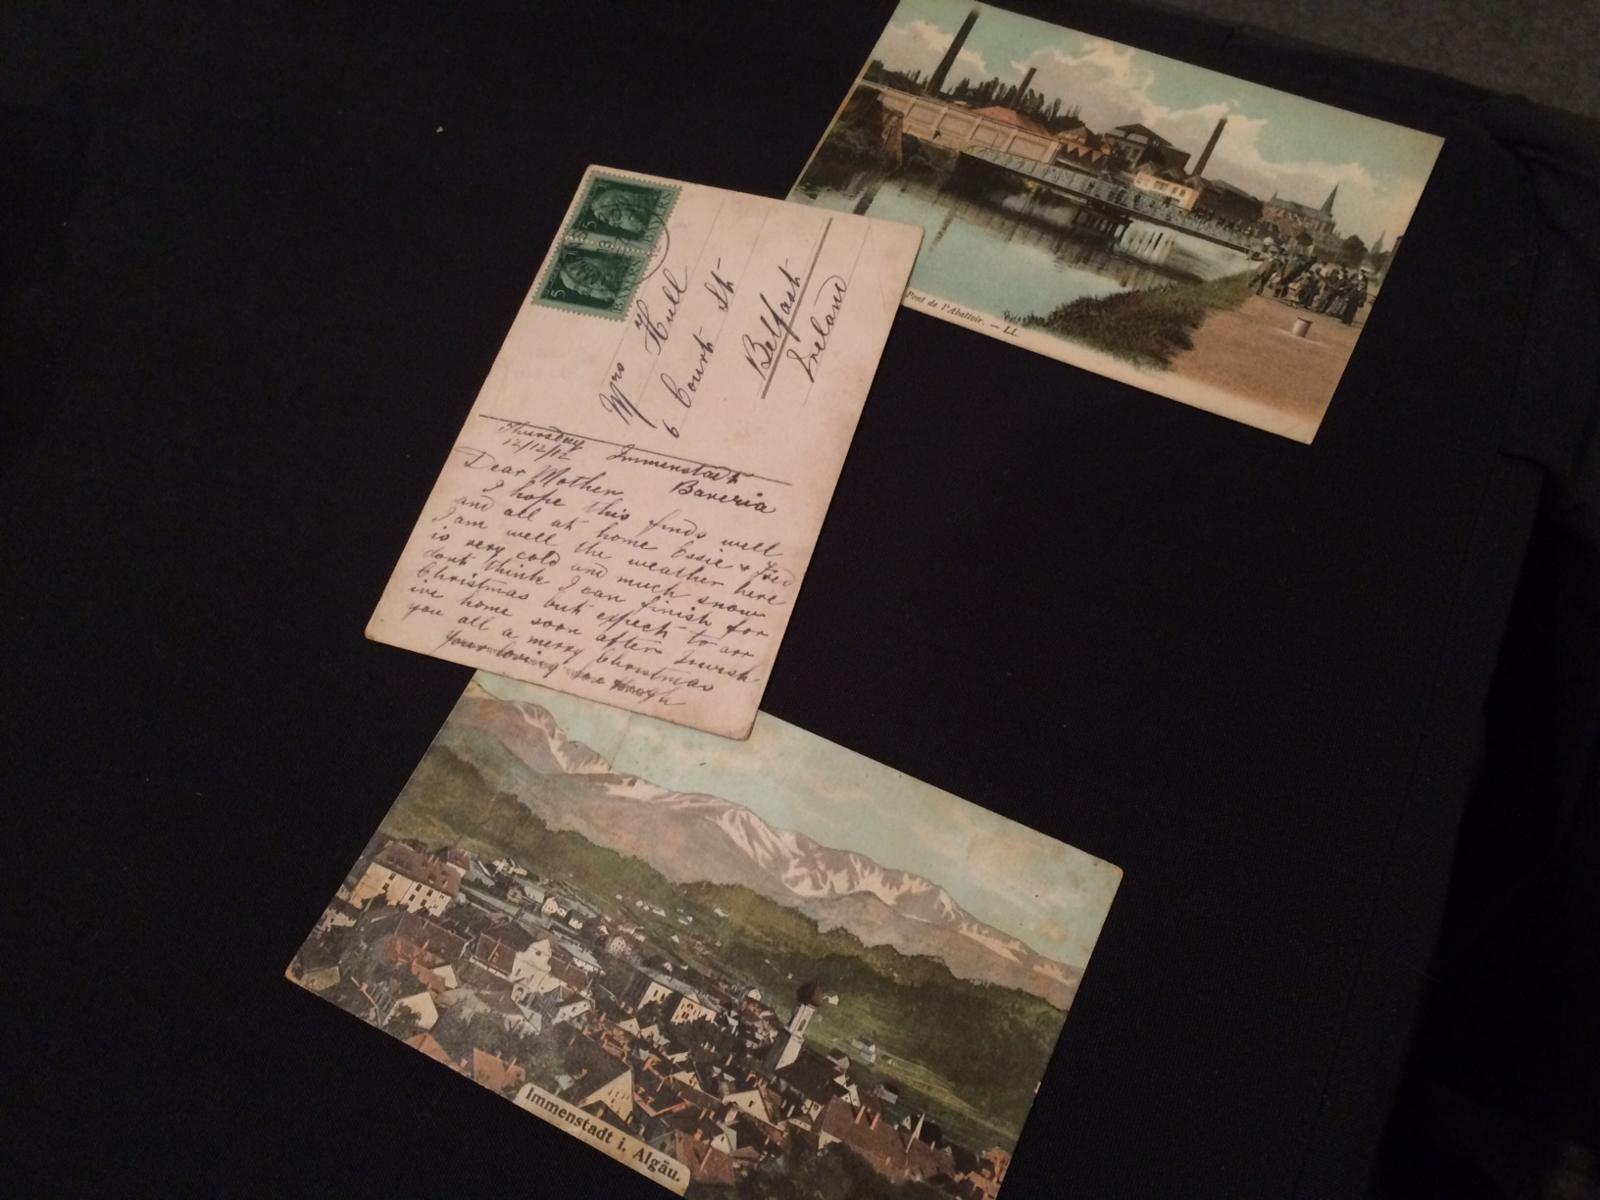 5
BAYERN
5
BAYERN
Mrs Hull
6 Court St
Belfast
Ireland
Thursday
12/12/12
Immenstadt
Baveria
Dear Mother
I hope this finds well
and all at home Essie & Fred
I am well the weather here
is very cold and much snow
dont think I can finish for
Christmas but expect to arr
ive home soon after I wish
you all a merry Christmas
Your loving son
Pont de l'Abattoir. — LL.
Immenstadt i. Algäu.